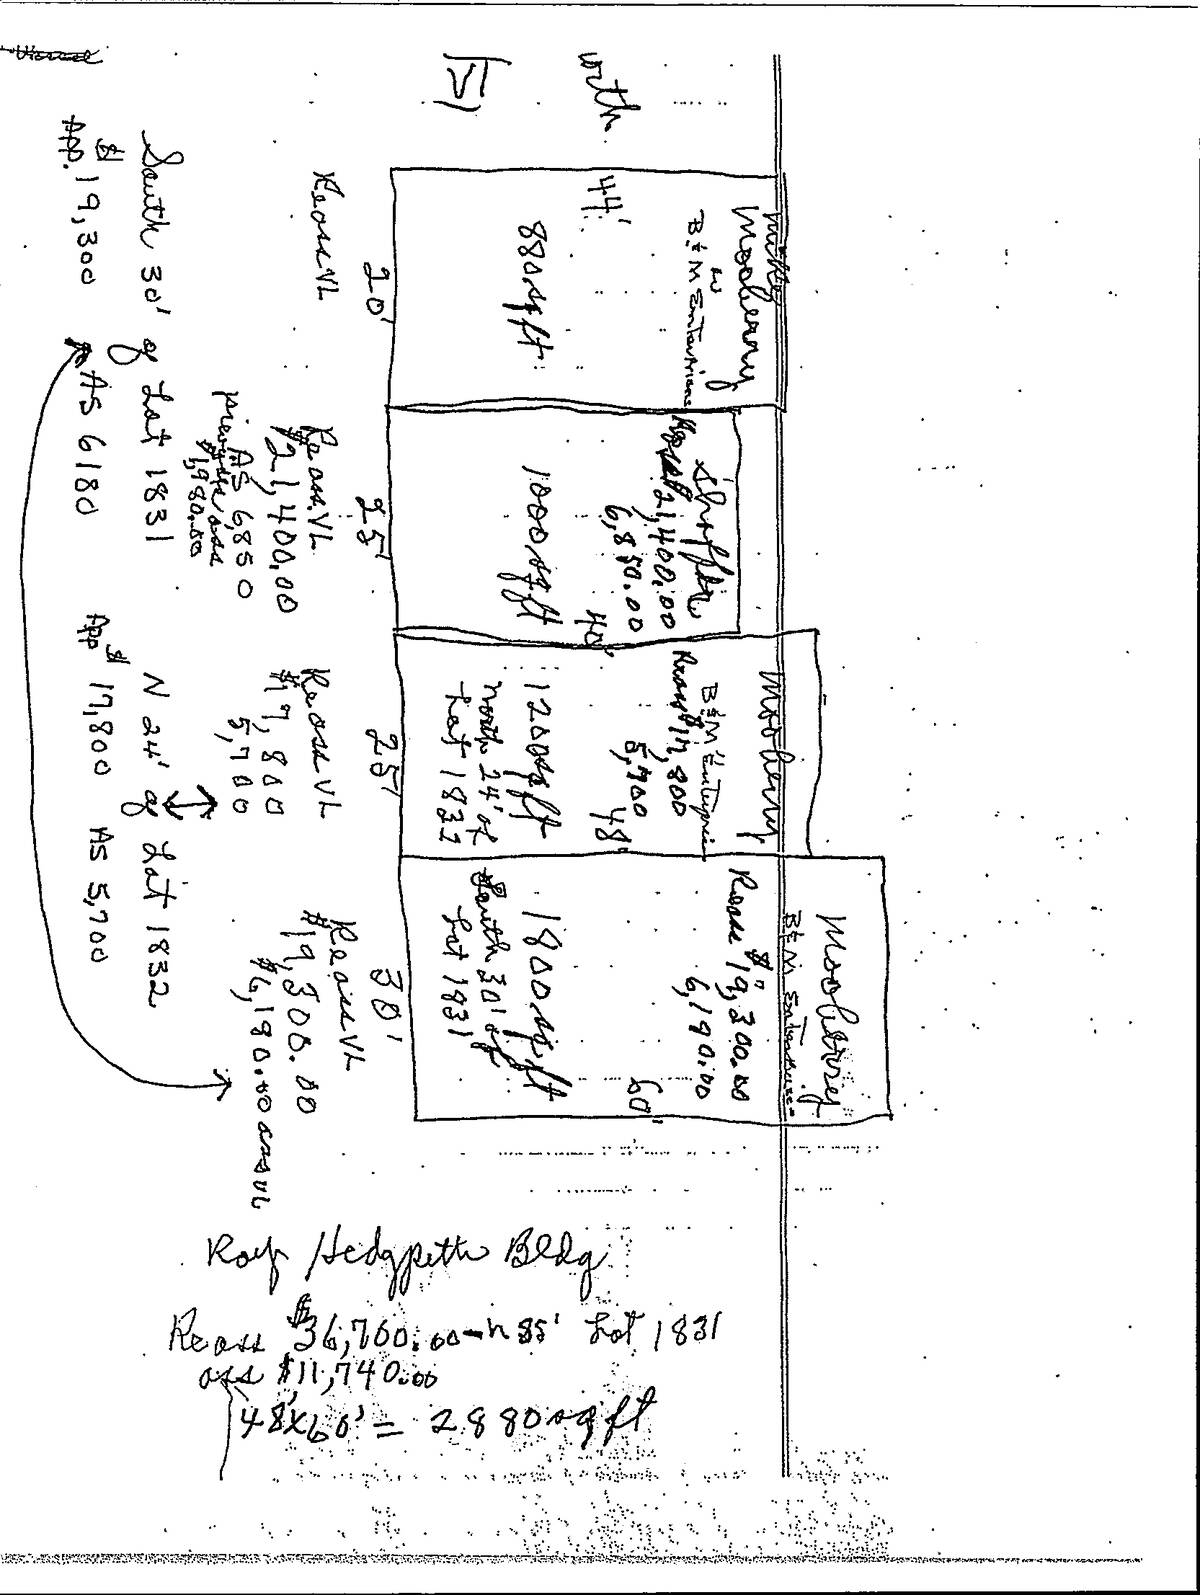 Mike
Mooberry
B & M Enterprises
44'
880 sq ft
20'
Reass VL
Shaffer
21,400.00
6,850.00
40'
1000 sq ft
25'
Reass. VL
$21,400.00
AS 6,850
previous ass
$1,980.00
Mooberry
B & M Enterprises
Reass $17,800
5,700
48'
1200 sq ft
north 24' of
Lot 1832
25'
Reass VL
$17,800
5,700
Mooberry
B & M Enterprises
Reass $19,300.00
6,190.00
60'
1800 sq ft
South 30' of
Lot 1831
30'
Reass VL
$19,300.00
$6,180.00 ass VL
South 30' of Lot 1831
App. $19,300 AS 6180
N 24' of Lot 1832
App $17,800 AS 5,700
Roy Hedgpeth Bldg
Reass $36,700.00 - N 85' Lot 1831
ass $11,740.00
48' x 60' = 2880 sq ft